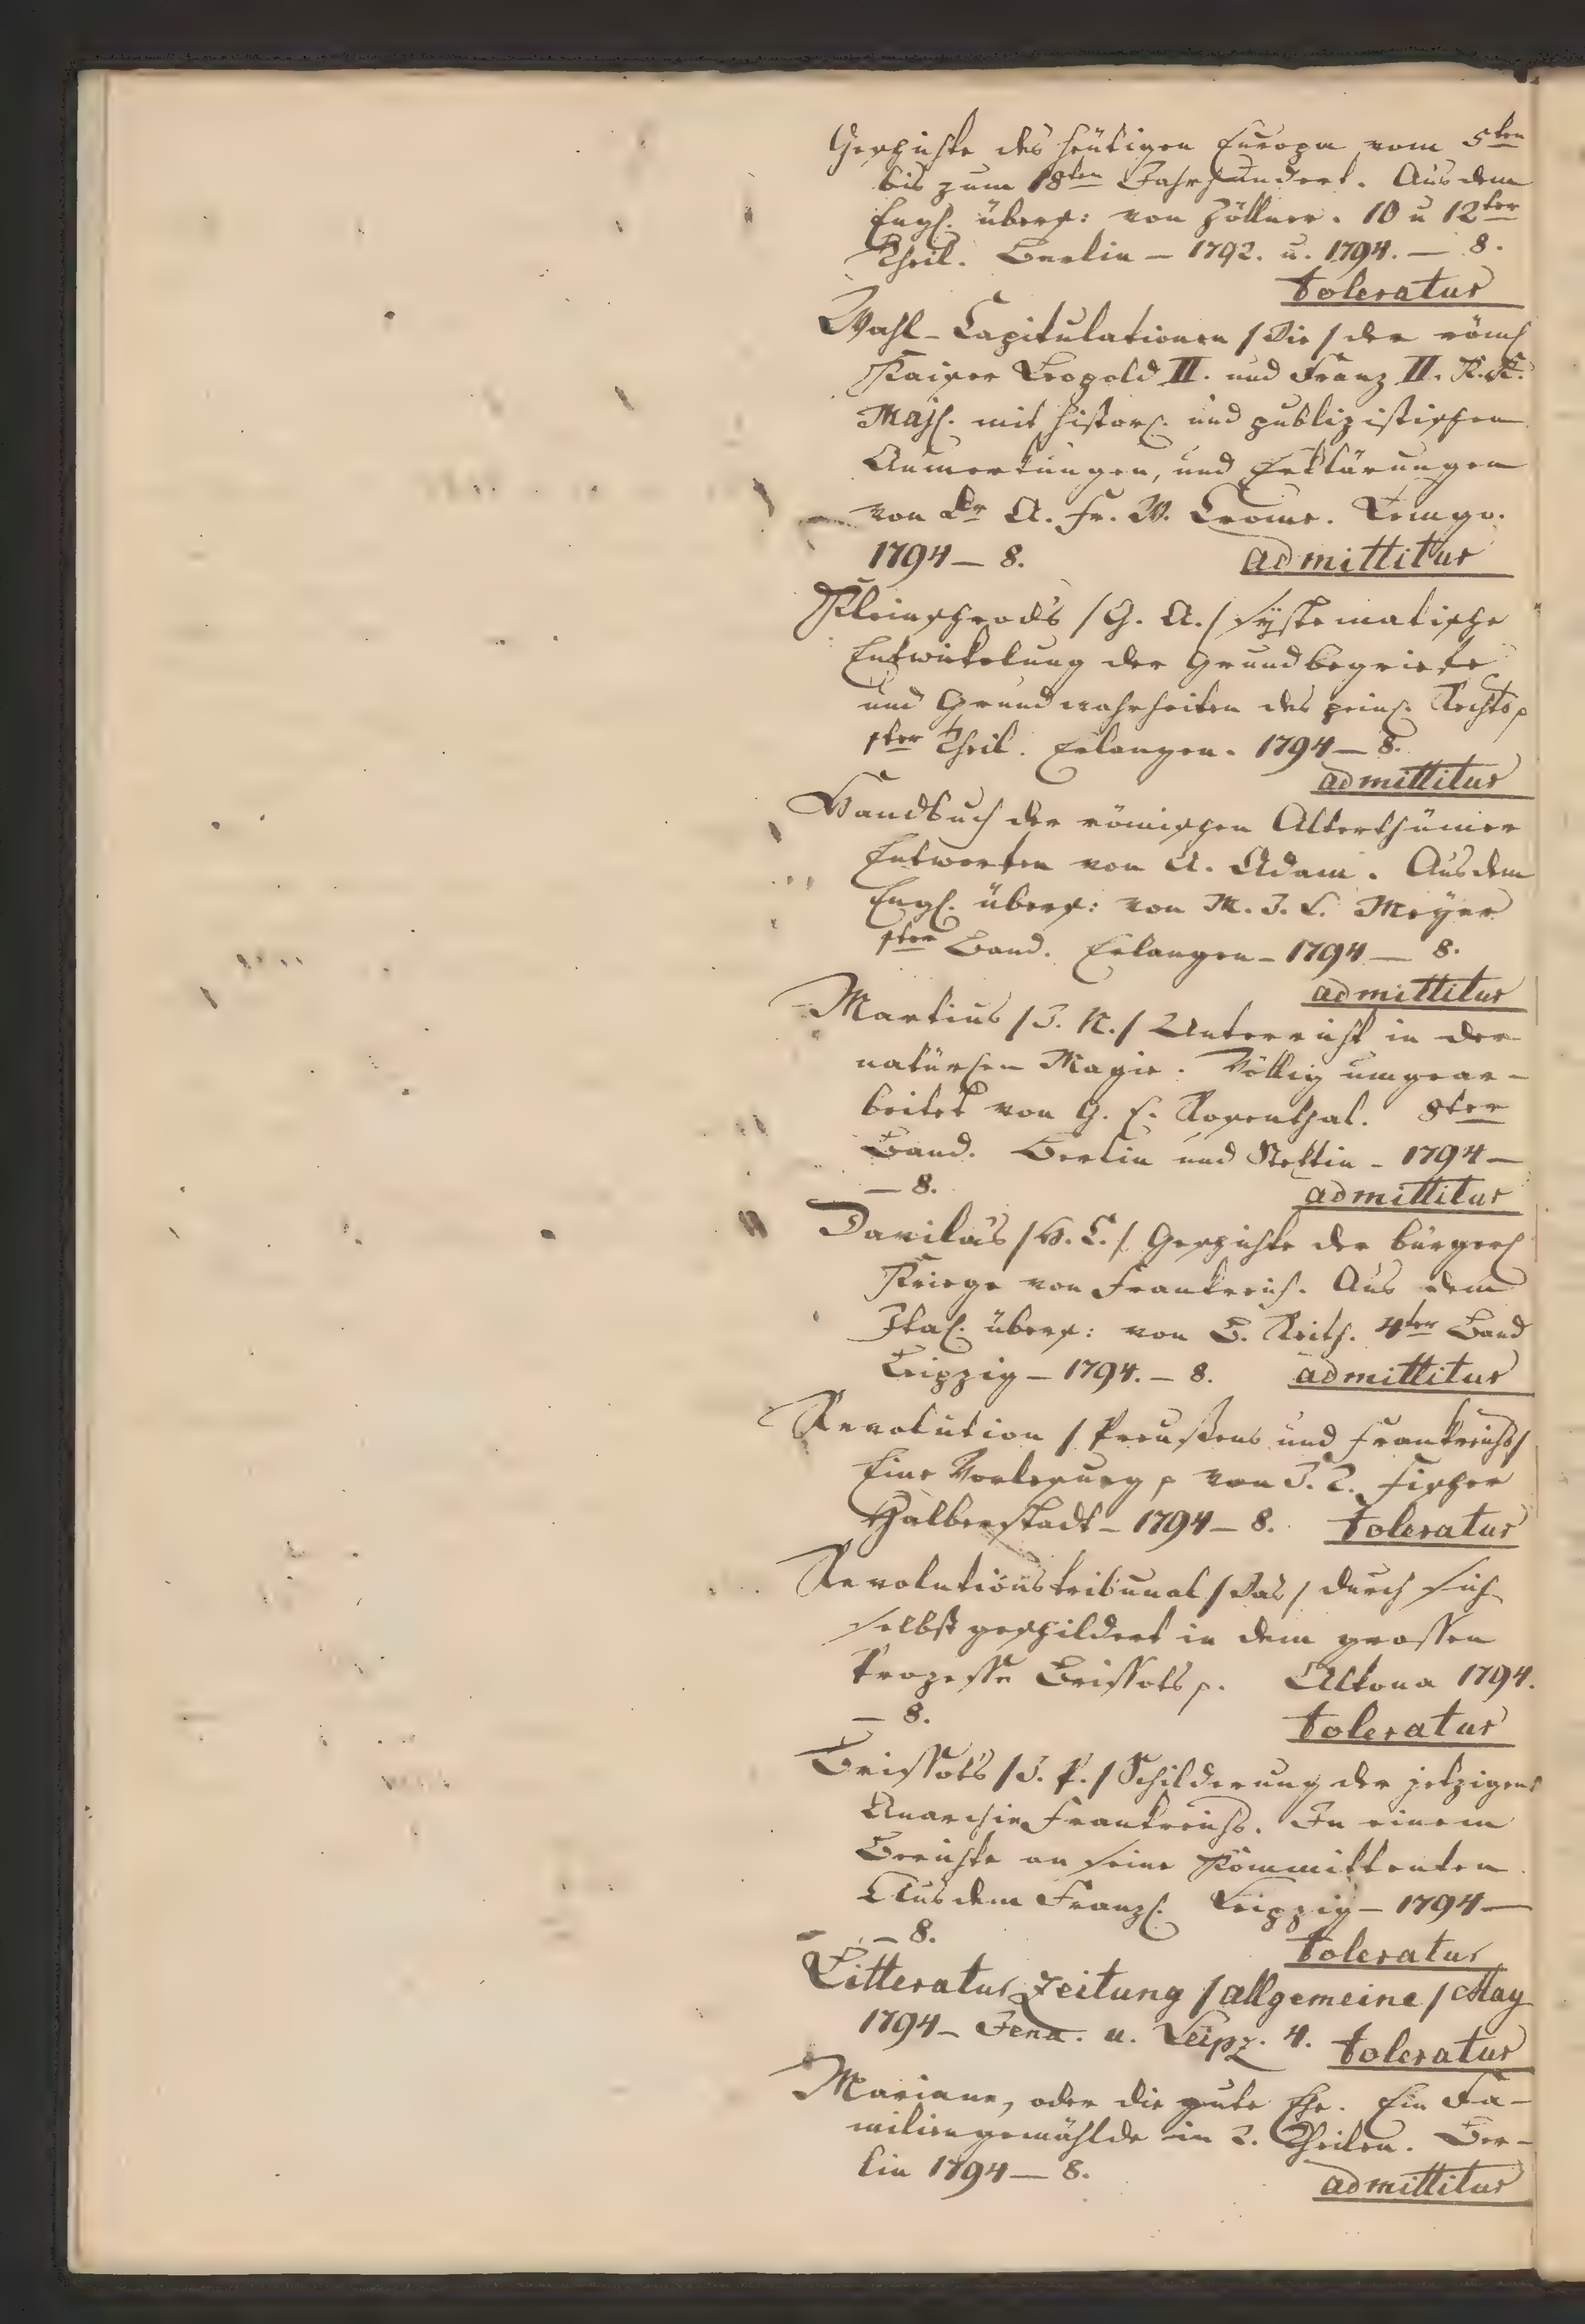 Geschichte des heütigen Europa vom 5ten
bis zum 18ten Jahrhundert. Aus dem
Engl. übers: von Zöllner. 10 u 12ter
Theil. Berlin – 1792. u. 1794. — 8.
toleratur
Wahl-Capitulationen /die/ der röml
Kaiser Leopold II. und Franz II. K.K.
Majl. mit histor. und publizistischen
Anmerkungen, und Erklärungen
von Dr A. Fr. W. Crome. Lemgo.
1794 — 8. admittitur
Kleinschrods /G. A./ systematische
Entwickelung der Grundbegriffe
und Grundwahrheiten des peinl. Rechts
1ter Theil. Erlangen. 1794 — 8.
admittitur
Handbuch der römischen Alterthümer
Entworfen von A. Adam. Aus dem
Engl. übers: von M. J. L. Meyer
1ter Band. Erlangen – 1794 — 8.
admittitur
Martius /J. N./ Unterricht in der
natürlen Magie. Völlig umgear-
beitet von G. E. Rosenthal. 8ter
Band. Berlin und Stettin – 1794 —
— 8. admittitur
Davila's /H. C./ Geschichte der bürgerl
Kriege von Frankreich. Aus dem
Ital. übers: von B. Reith. 4ter Band
Leipzig – 1794. – 8. admittitur
Revolution /Preußens und Frankreichs/
Eine Vorlesung von J. C. Fischer
Halberstadt – 1794 – 8. toleratur
Revolutionstribunal /das/ durch sich
selbst geschildert in dem grossen
Prozesse Brissots. Altona 1794.
— 8. toleratur
Brissots /J. P./ Schilderung der jetzigen
Anarchie Frankreichs. In einem
Berichte an seine Kommittenten
Aus dem Franzl. Leipzig – 1794 —
— 8. toleratur
Litteratur Zeitung /allgemeine/ May
1794 – Jena. u. Leipz. 4. toleratur
Mariane, oder die gute Ehe. Ein Fa-
miliengemählde in 2. Theilen. Ber-
lin 1794 — 8. admittitur